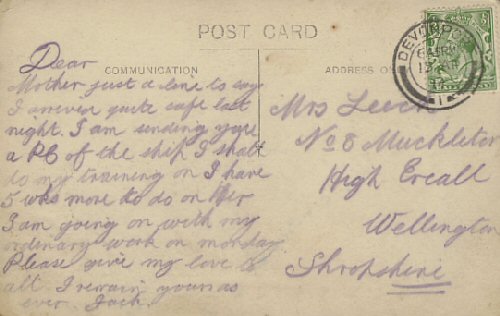 POST CARD
COMMUNICATION
ADDRESS
Dear
Mother just a line to say
I arrived quite safe last
night. I am sending you
a PC of the ship I shall
do my training on I have
5 wks more to do on Her
I am going on with my
ordinary work on monday
Please give my love to
all I remain yours as
ever. Jack.
DEVONPORT
Mrs Leech
No 8 Muckleton
High Ercall
Wellington
Shropshire